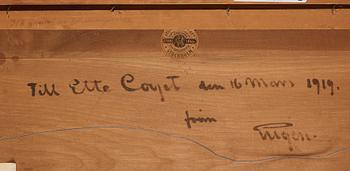 Till Ette Coyet den 16 Mars 1919.
från
Eugen.